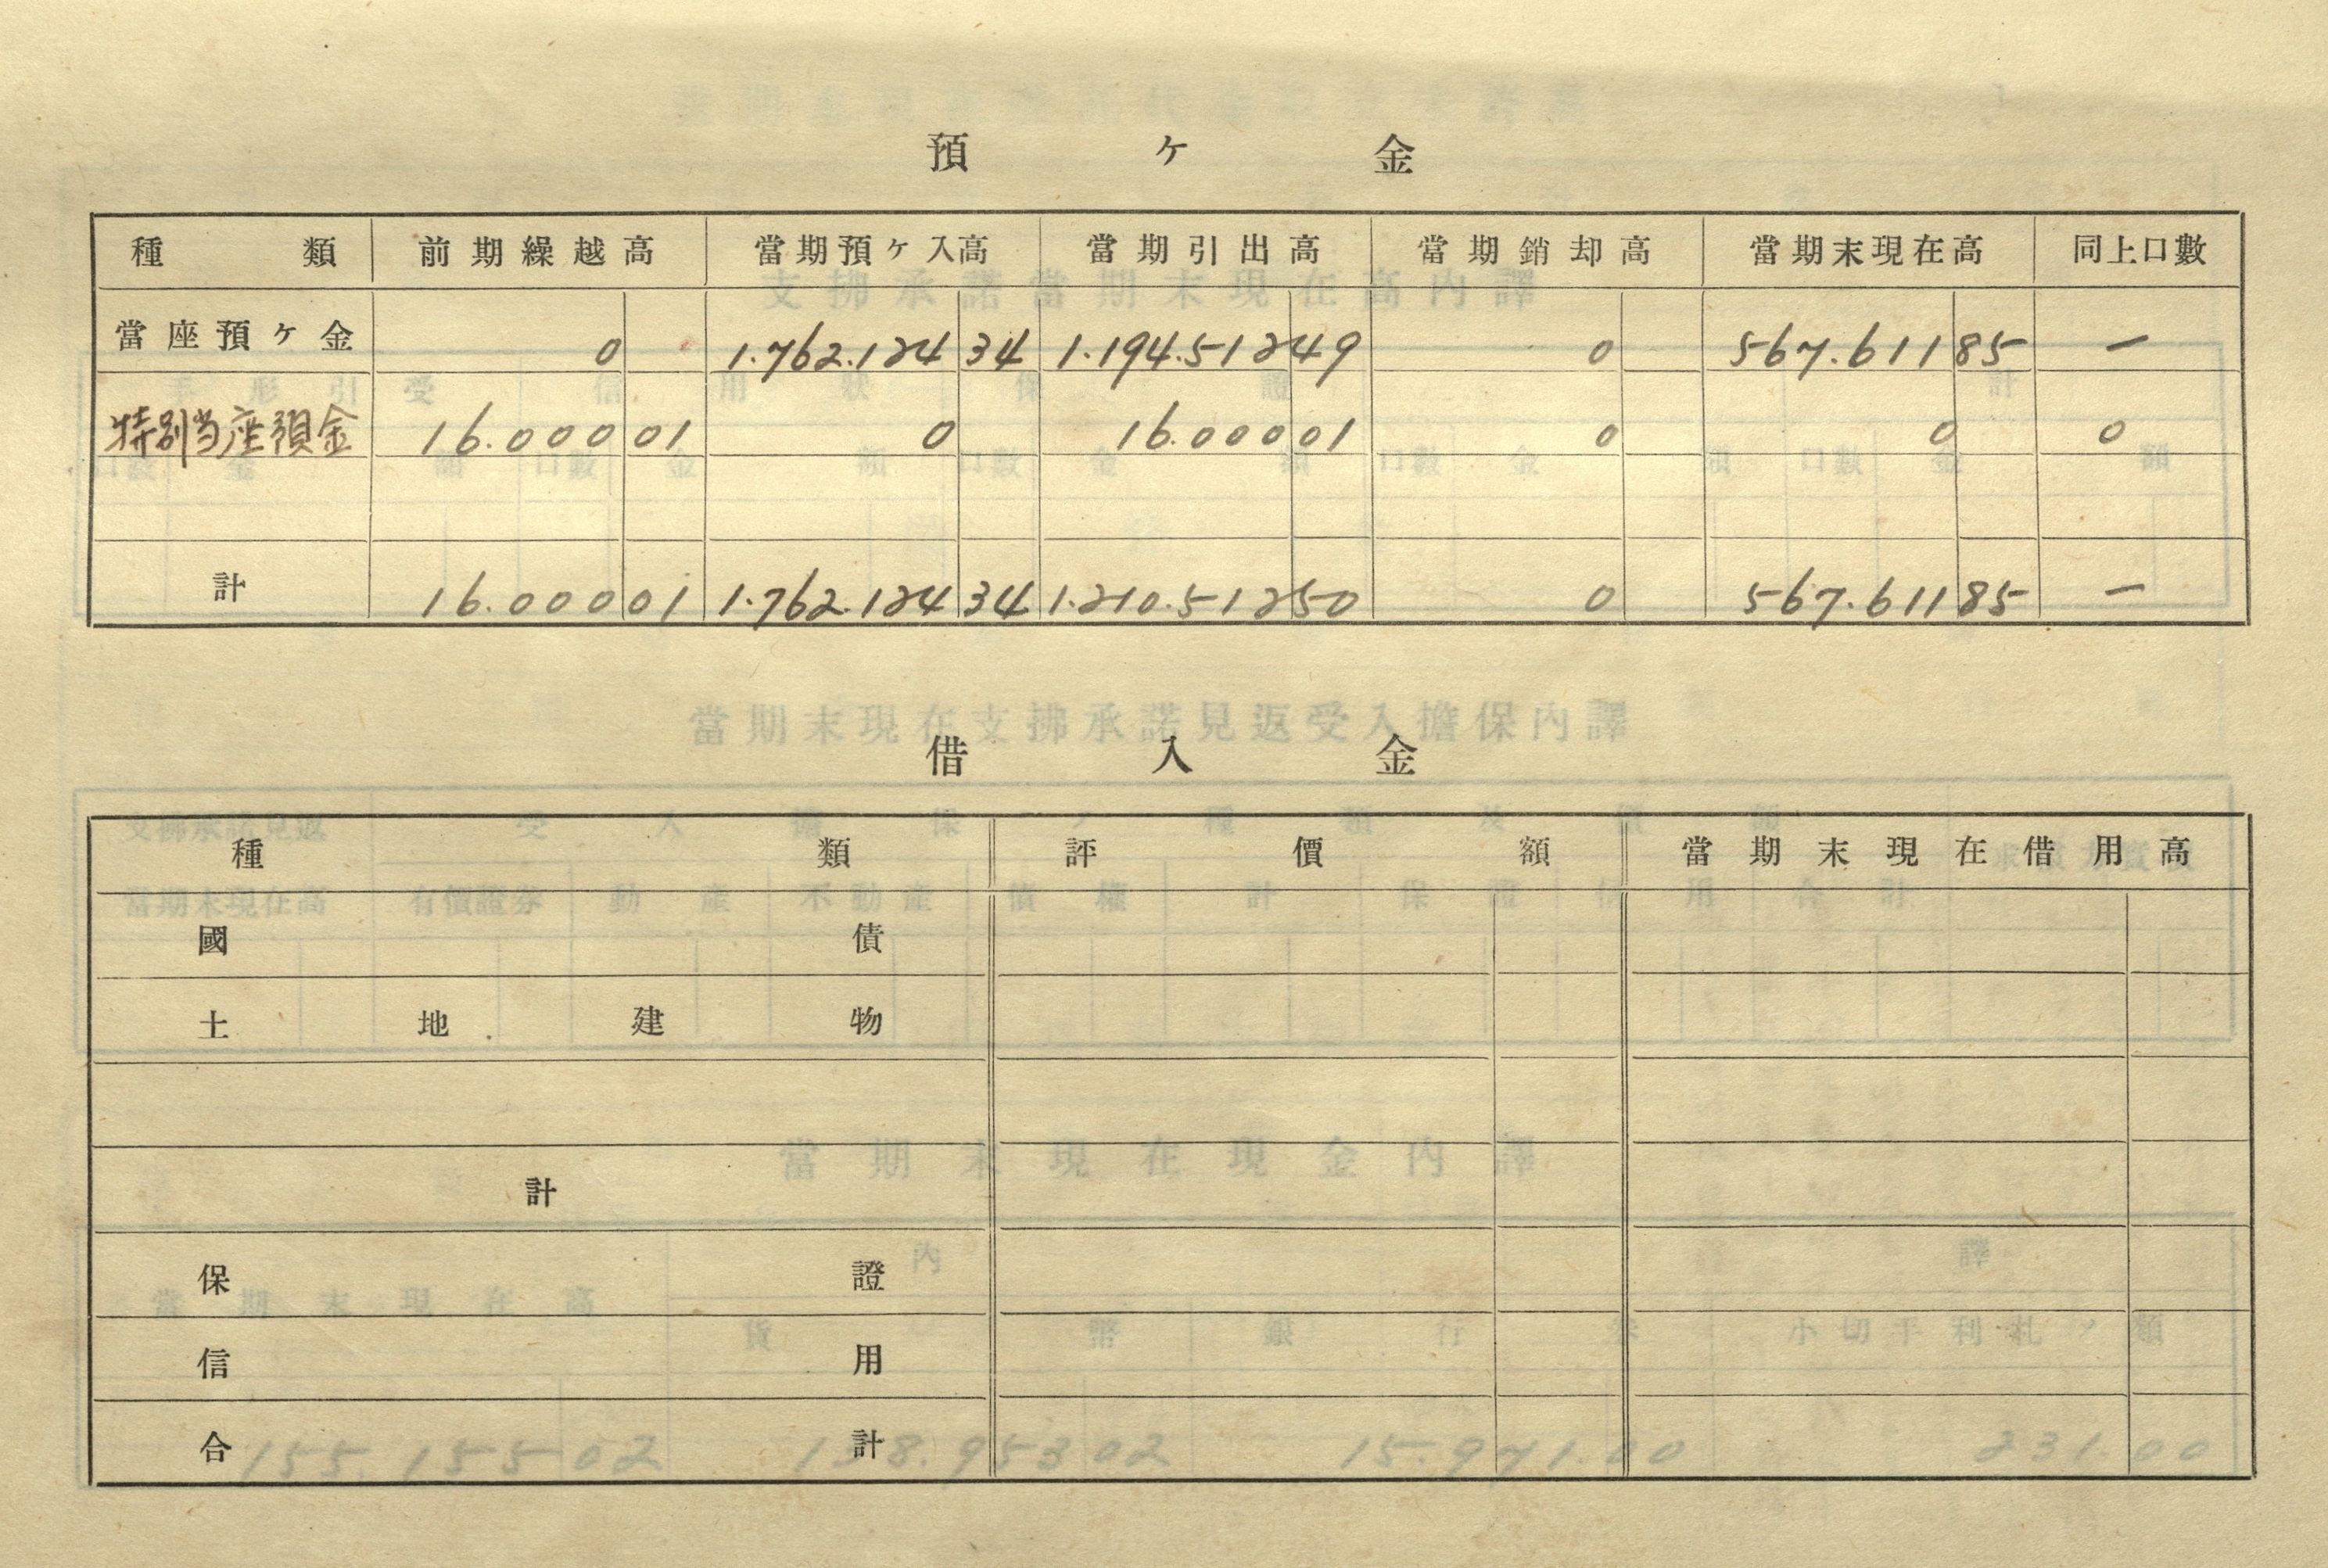 預ケ金
種類 前期繰越高 當期預ケ入高 當期引出高 當期銷却高 當期末現在高 同上口數
當座預ケ金 0 1.762.124 34 1.194.512 49 0 567.611 85 一
特別当座預金 16.000 01 0 16.000 01 0 0 0
計 16.000 01 1.762.124 34 1.210.512 50 0 567.611 85 一
借入金
種類 評價額 當期末現在借用高
國債
土地建物
計
保證
信用
合計